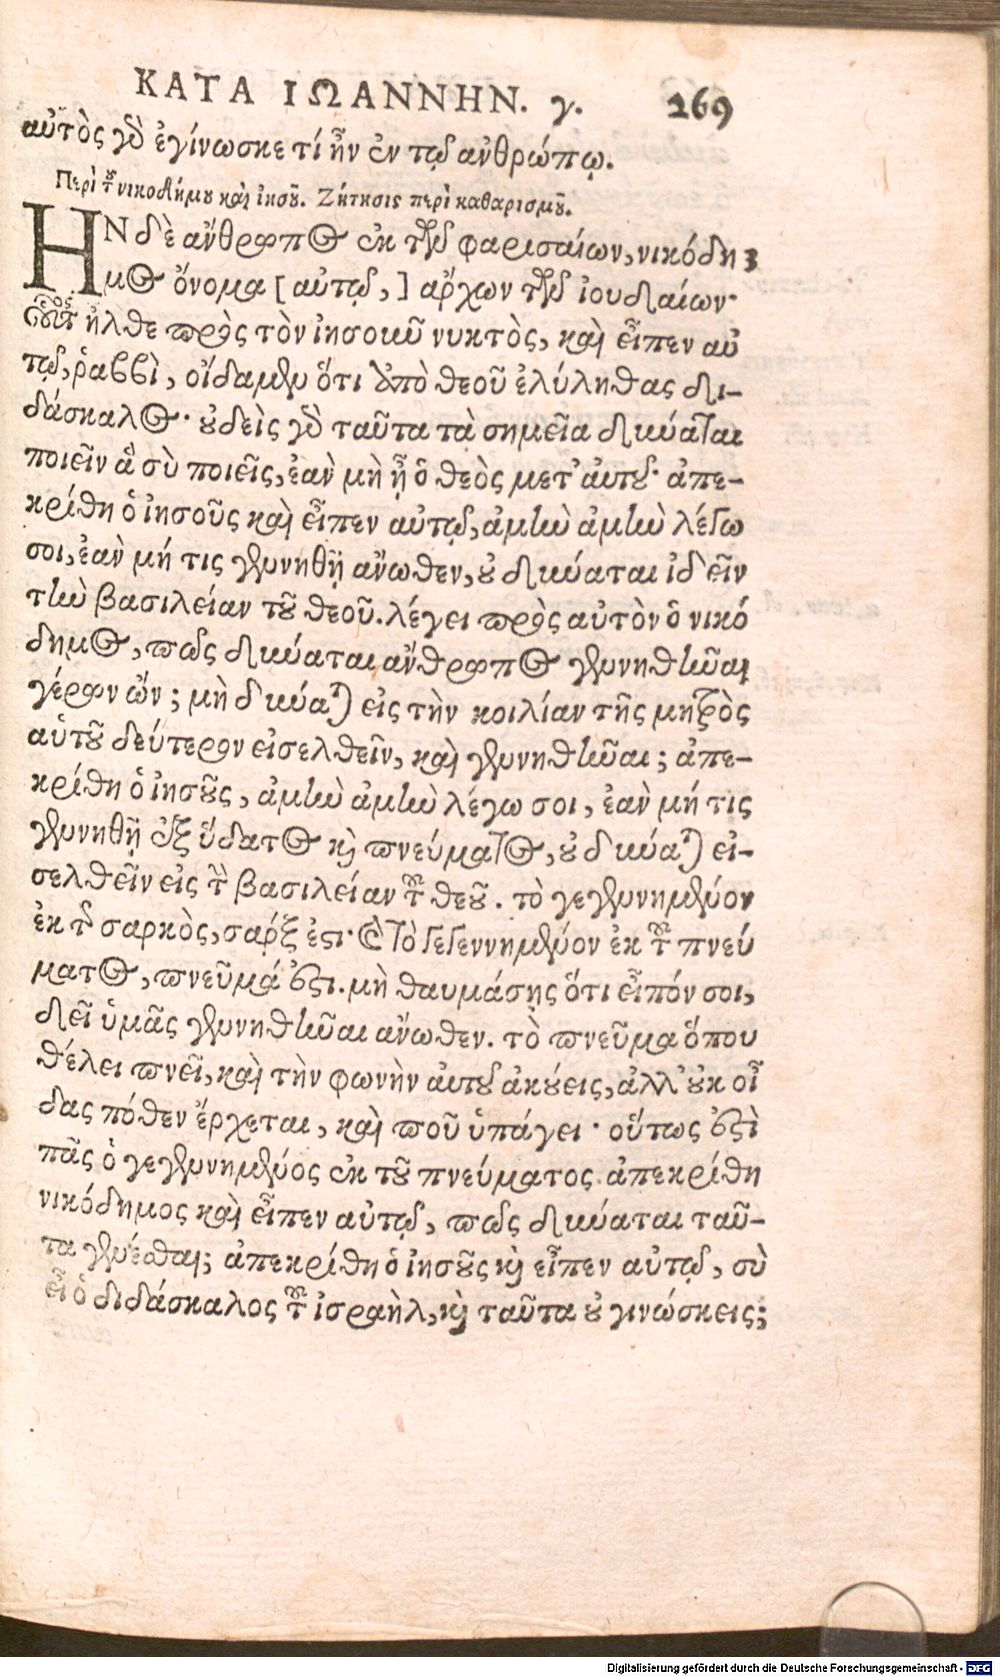 ΚΑΤΑ ΙΩΑΝΝΗΝ. γ. 269
αὐτὸς γὰρ ἐγίνωσκε τί ἦν ἐν τῷ ἀνθρώπῳ.
Περὶ τοῦ νικοδήμου καὶ ἰησοῦ. Ζήτησις περὶ καθαρισμοῦ.
ΗΝ δὲ ἄνθρωπος ἐκ τῶν φαρισαίων, νικόδη 3
μος ὄνομα [αὐτῷ,] ἄρχων τῶν ἰουδαίων·
οὗτος ἦλθε πρὸς τὸν ἰησοῦν νυκτὸς, καὶ εἶπεν αὐ
τῷ, ῥαββὶ, οἴδαμεν ὅτι ἀπὸ θεοῦ ἐλήλυθας δι-
δάσκαλος· οὐδεὶς γὰρ ταῦτα τὰ σημεῖα δύναται
ποιεῖν ἃ σὺ ποιεῖς, ἐὰν μὴ ᾖ ὁ θεὸς μετ' αὐτοῦ· ἀπε-
κρίθη ὁ ἰησοῦς καὶ εἶπεν αὐτῷ, ἀμὴν ἀμὴν λέγω
σοι, ἐὰν μή τις γεννηθῇ ἄνωθεν, οὐ δύναται ἰδεῖν
τὴν βασιλείαν τοῦ θεοῦ. λέγει πρὸς αὐτὸν ὁ νικό
δημος, πῶς δύναται ἄνθρωπος γεννηθῆναι
γέρων ὤν; μὴ δύναται εἰς τὴν κοιλίαν τῆς μητρὸς
αὑτοῦ δεύτερον εἰσελθεῖν, καὶ γεννηθῆναι; ἀπε-
κρίθη ὁ ἰησοῦς, ἀμὴν ἀμὴν λέγω σοι, ἐὰν μή τις
γεννηθῇ ἐξ ὕδατος καὶ πνεύματος, οὐ δύναται εἰ-
σελθεῖν εἰς τὴν βασιλείαν τοῦ θεοῦ. τὸ γεγεννημένον
ἐκ τῆς σαρκὸς, σάρξ ἐστι· καὶ τὸ γεγεννημένον ἐκ τοῦ πνεύ
ματος, πνεῦμά ἐστι. μὴ θαυμάσῃς ὅτι εἶπόν σοι,
δεῖ ὑμᾶς γεννηθῆναι ἄνωθεν. τὸ πνεῦμα ὅπου
θέλει πνεῖ, καὶ τὴν φωνὴν αὐτοῦ ἀκούεις, ἀλλ' οὐκ οἶ
δας πόθεν ἔρχεται, καὶ ποῦ ὑπάγει· οὕτως ἐστὶ
πᾶς ὁ γεγεννημένος ἐκ τοῦ πνεύματος. ἀπεκρίθη
νικόδημος καὶ εἶπεν αὐτῷ, πῶς δύναται ταῦ-
τα γενέσθαι; ἀπεκρίθη ὁ ἰησοῦς καὶ εἶπεν αὐτῷ, σὺ
εἶ ὁ διδάσκαλος τοῦ ἰσραὴλ, καὶ ταῦτα οὐ γινώσκεις;
Digitalisierung gefördert durch die Deutsche Forschungsgemeinschaft - DFG